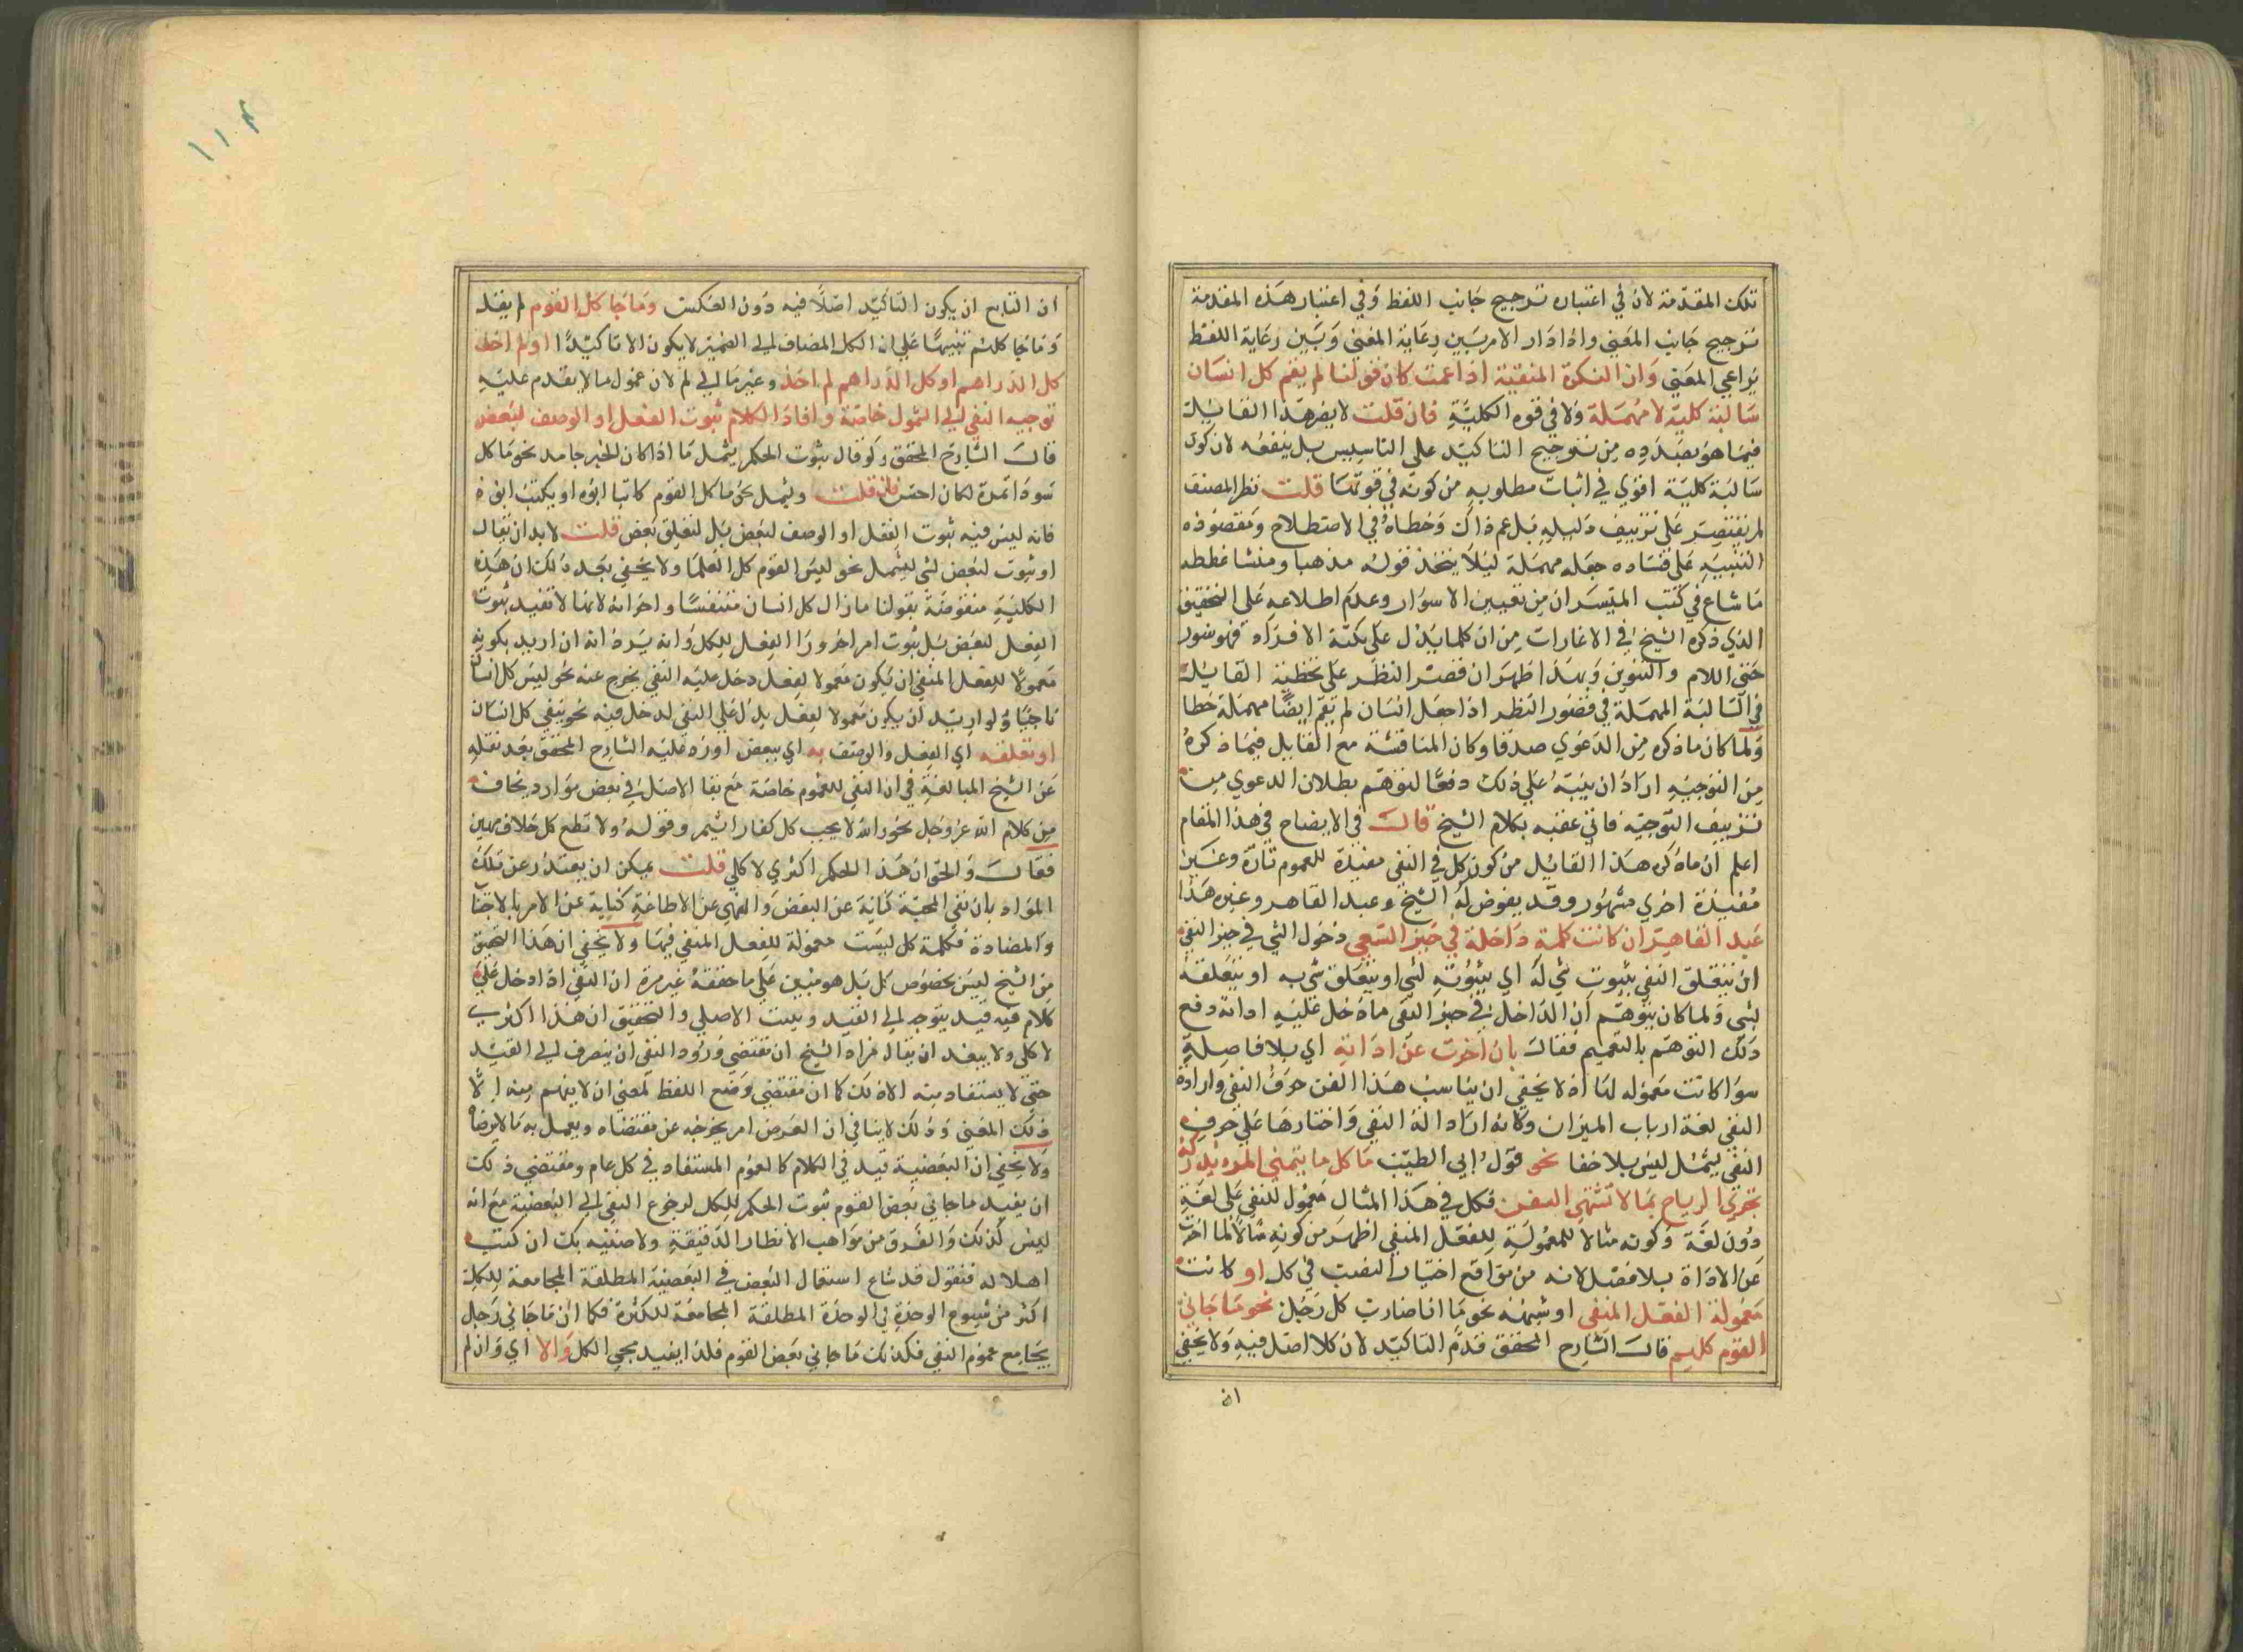 تلك المقدمة لان في اعتباره ترجيح جانب اللفظ وفي اعتبار هذه المقدمة
ترجيح جانب المعني واذا دار الامر بين رعاية المعني وبين رعاية اللفظ
يراعي المعني وان النكرة المنفية اذا عمت كان قولنا لم يقم كل انسان
سالبة كلية لا مهملة ولا في قوة الكلية فان قلت لا يضر هذا القايل
فيما هو بصدده من ترجيح التاكيد علي التاسيس بل ينفعه لان كون
سالبة كلية اقوي في اثبات مطلوبه من كونه في قوتها قلت نظر المصنف
لم يقتصر علي تزييف دليله بل عم ذاك وخطاه في الاصطلاح ومقصوده
التنبيه علي فساده جعله مهملة ليلا يتخذ قوله مذهبا ومنشا غلطه
ما شاع في كتب الميسران من تعيين الاسوار وعدم اطلاعه علي التحقيق
الذي ذكره الشيخ في الاشارات من ان كلما يدل علي كمية الافراد فهو سور
حتي اللام والتنوين وبهذا ظهر ان قصر النظر علي تخطية القايل
في السالبة المهملة في قصور النظر اذا جعل انسان لم يقم ايضا مهملة خطا
ولما كان ما ذكره من الدعوي صدقا وكان المناقشة مع القايل فيما ذكره
من التوجيه اراد ان ينبه علي ذلك دفعا لتوهم بطلان الدعوي من
تزييف التوجيه فاتي عقبه بكلام الشيخ قال في الايضاح في هذا المقام
اعلم ان ما ذكره هذا القايل من كون كل في النفي مفيدة للعموم تارة وغير
مفيدة اخري مشهور وقد يعرض له الشيخ وعبد القاهر وغيره هذا
عبد القاهر ان كانت كلمة داخلة في حيز النفي دخول الشي في حيز النفي
ان يتعلق النفي بثبوت شي له اي بثبوته لشي او بتعلق شي به او بتعلقه
بشي ولما كان يتوهم ان الداخل في حيز النفي ما دخل عليه اداته دفع
ذلك التوهم بالتعميم فقال بان اخرت عن اداته اي بلا فاصلة
سوا كانت معموله لها اذ لا يخفي ان يناسب هذا الفن حرف النفي وارادة
النفي لغة ارباب الميزان وكانه اراد الة النفي واختارها علي حرف
النفي ليشمل ليس بلا خفا نحو قول ابي الطيب ما كل ما يتمني المرء يدركه
تجري الرياح بما لا تشتهي السفن فكل في هذا المثال معمول للنفي علي لغة
دون لغة وكونه مثالا للمعمولية للفعل المنفي اظهر من كونه مثالا لما اخرت
عن الاداة بلا فصل لانه من مواقع اختيار النصب في كل او كانت
معمولة الفعل المنفي او شبهه نحو ما انا ضارب كل رجل نحو ما جاني
القوم كلهم قال الشارح المحقق قدم التاكيد لان كلا اصل فيه ولا يخفي
ان
ان التابع ان يكون التاكيد اصلا فيه دون العكس وما جا كل القوم لم يقل
وما جا كلهم تنبيها علي ان الكل المضاف الي الضمير لا يكون الا تاكيدا او لم اخذ
كل الدراهم او كل الدراهم لم اخذ وغير ما لي لم لان معمول ما لا يقدم عليه
توجيه النفي الي الشمول خاصة وافاد الكلام ثبوت الفعل او الوصف لبعض
قال الشارح المحقق ولو قال ثبوت الحكم ليشمل ما اذا كان الخبر جامد نحو ما كل
سودا تمرة لكان احسن فان قلت وليشمل نحو ما كل القوم كاتبا ابوه او يكتب ابوه
فانه ليس فيه ثبوت الفعل او الوصف لبعض بل لتعلق بعض قلت لا بد ان يقال
او ثبوت لبعض لشي ليشمل نحو ليس القوم كل العلما ولا يخفي بعد ذلك ان هذه
الكلية منقوضة بقولنا ما زال كل انسان متنفسا واخواته لانها لا تفيد ثبوت
الفعل لبعض بل ثبوت امر اخر وزا الفعل للكل وانه يرد انه ان اريد بكونه
معمولا للفعل المنفي ان يكون معمولا لفعل دخل عليه النفي يخرج عنه نحو ليس كل انسان
ناجيا ولو اريد ان يكون معمولا لفعل يدل علي النفي لدخل فيه نحو ينفي كل انسان
او تعلقه اي الفعل والوصف به اي ببعض اورد عليه الشارح المحقق بعد نقله
عن الشيخ المبالغة في ان النفي للعموم خاصة مع بقا الاصل في بعض موارد يخاف
من كلام الله عز وجل نحو والله لا يحب كل كفار اثيم وقوله ولا تطع كل حلاف مهين
فقال والحق ان هذا الحكم اكثري لا كلي قلت يمكن ان يعتذر عن تلك
المواد بان نفي المحبة كناية عن البغض والنهي عن الاطاعة كناية عن الامر بالاجتنا
والمضادة فكلمة كل ليست معمولة للفعل المنفي فيها ولا يخفي ان هذا التحقيق
من الشيخ ليس بخصوص كل بل هو مبين علي ما حققه غير مرة ان النفي اذا دخل علي
كلام فيه قيد يتوجه الي القيد ويثبت الاصلي والتحقيق ان هذا اكثري
لا كلي ولا يبعد ان يقال مراد الشيخ ان تقتضي ورود النفي ان ينصرف الي القيد
حتي لا يستفاد منه الا ذلك كما ان مقتضي وضع اللفظ لمعني ان لا يفهم منه الا
ذلك المعني وذلك لا ينافي ان العرض امر يخرجه عن مقتضاه ويعمل به ما لا يرضاه
ولا يخفي ان البعضية قيد في الكلام كالعموم المستفاد في كل عام ومقتضي ذلك
ان يفيد ما جاني بعض القوم ثبوت الحكم للكل لرجوع النفي الي البعضية مع انه
ليس كذلك والفرق من مواهب الانظار الدقيقة ولا صنيه بك ان كنت
اهلا له فنقول قد شاع استعمال البعض في البعضية المطلقة المجامعة للكل
اكثر من شيوع الوحدة في الوحدة المطلقة المجامعة للكثرة فكما ان ما جاني رجل
يجامع عموم النفي فكذلك ما جاني بعض القوم فلذا يفيد مجي الكل والا اي وان لم